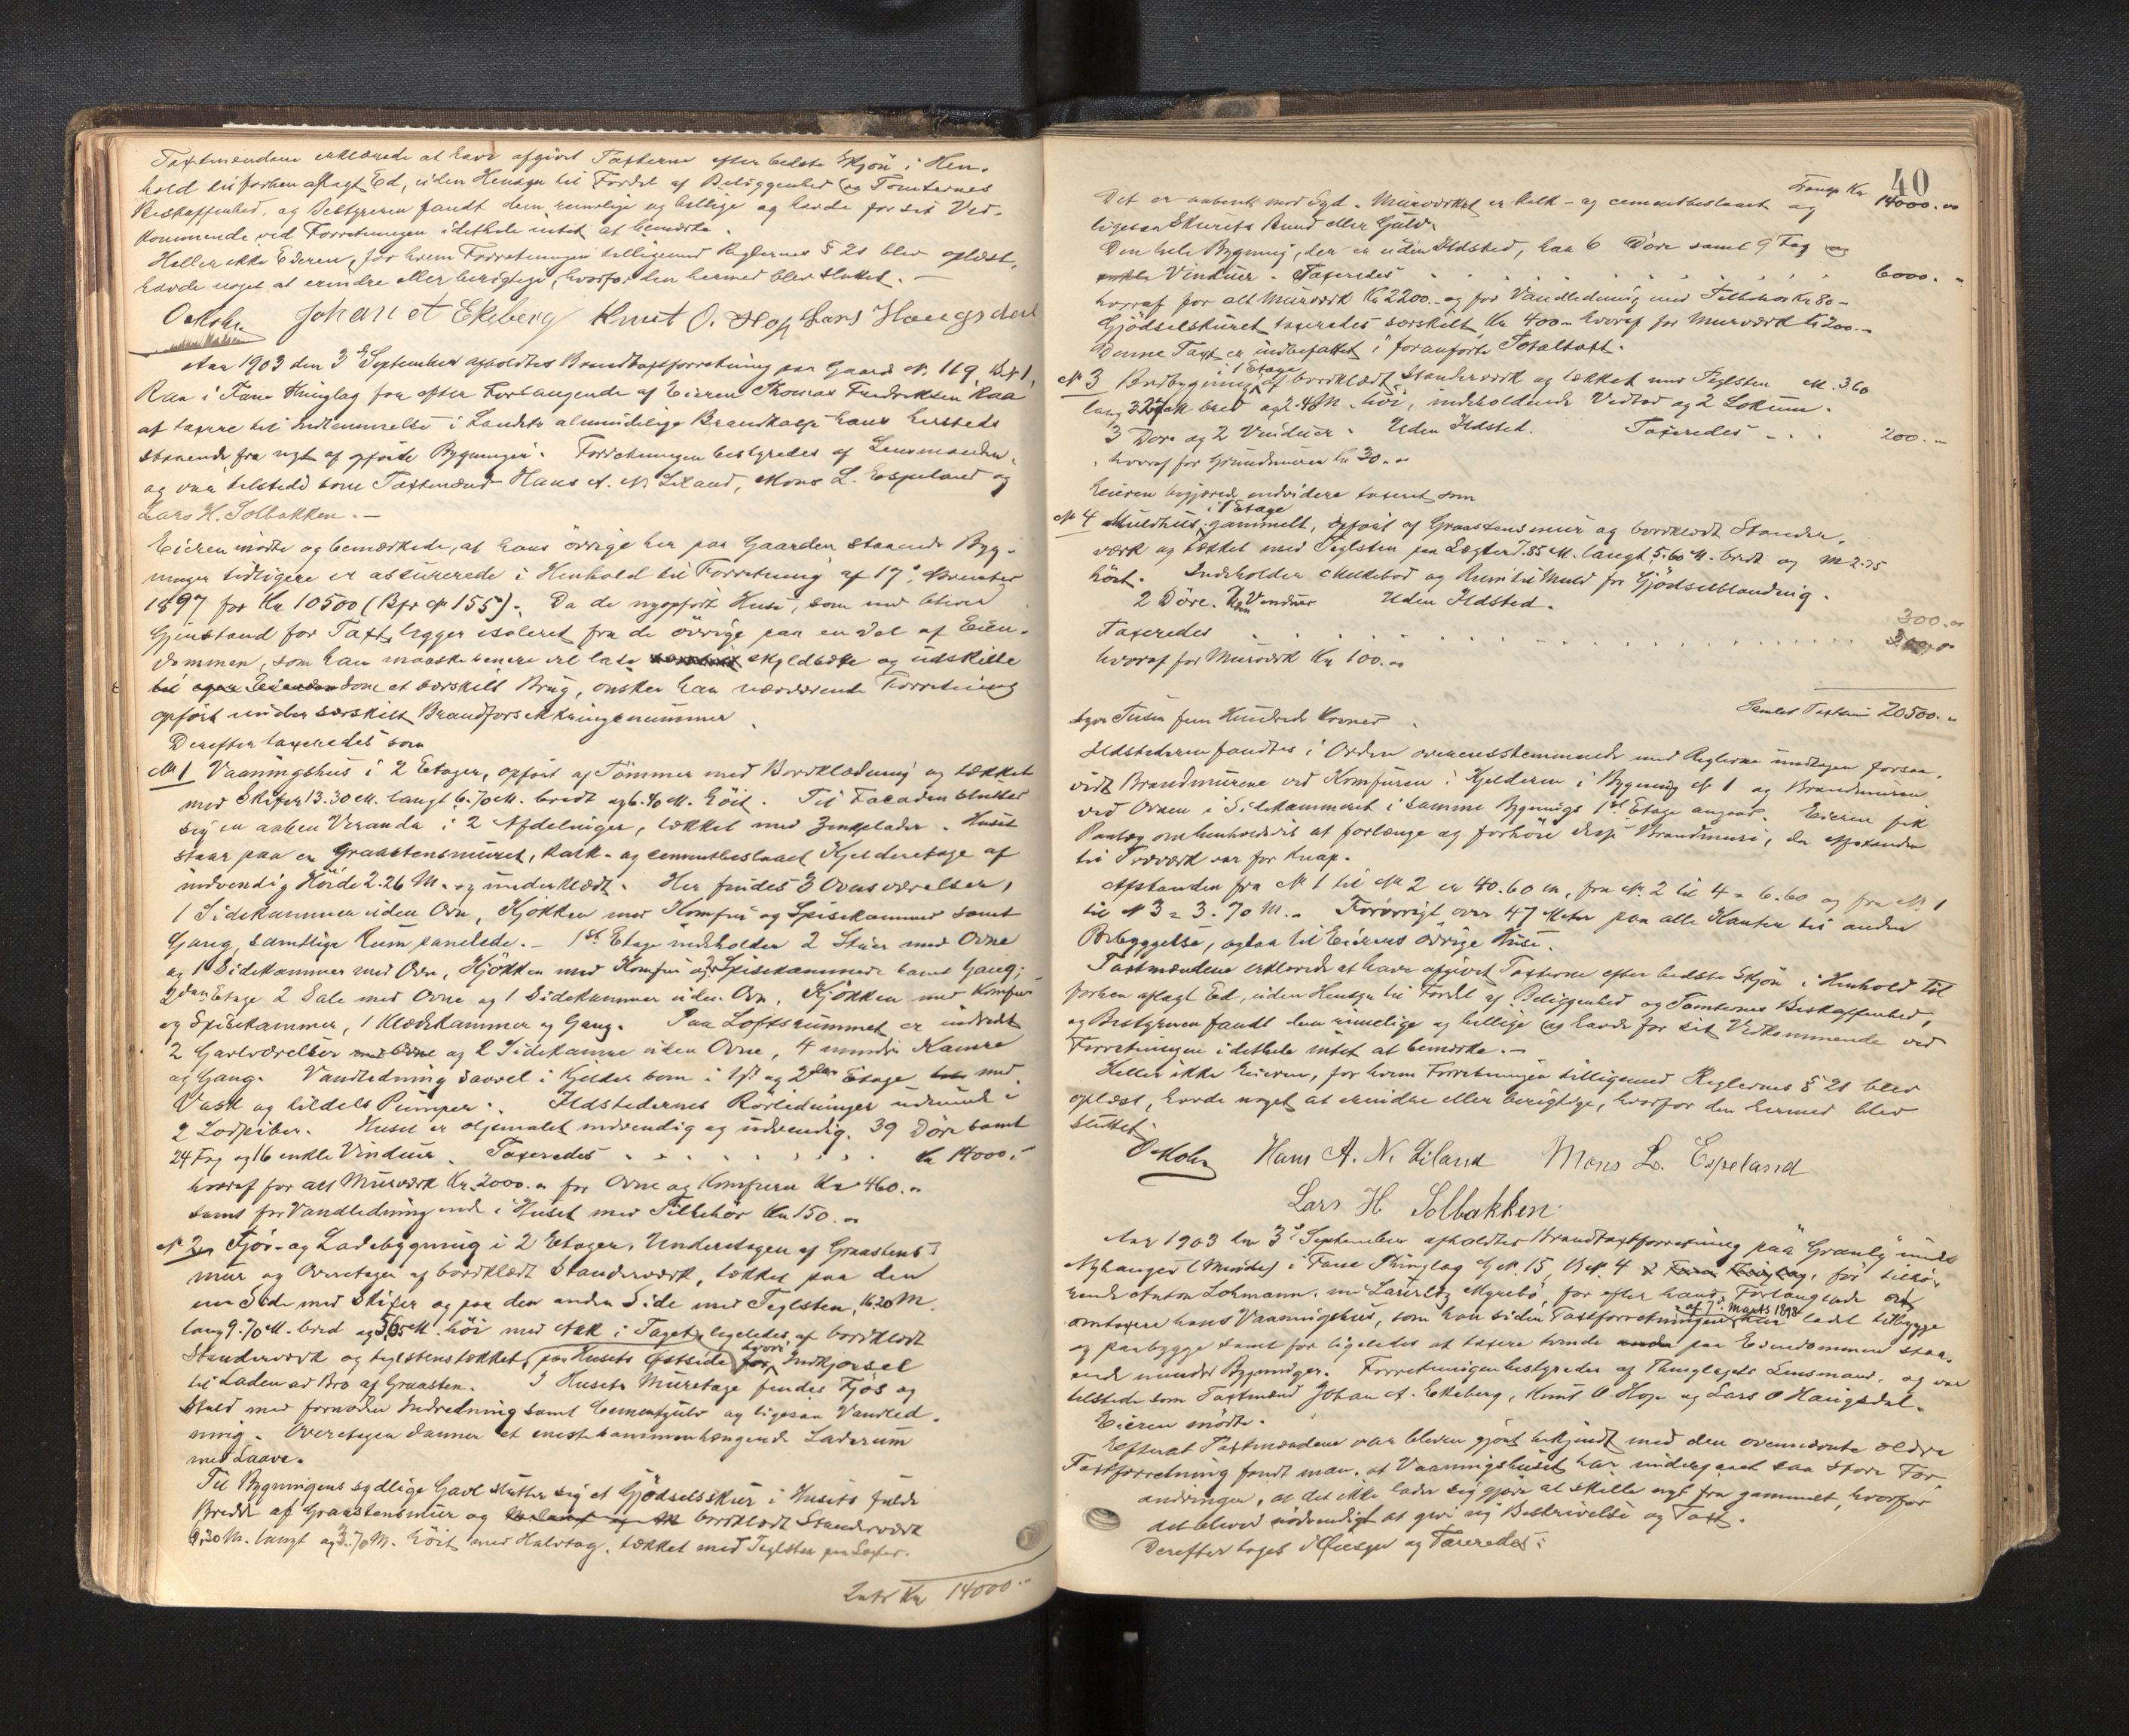 Taxtmændene erklærede at have afgivet Taxterne efter bedste Skjøn i Hen-
hold til forhen aflagt Ed, uden Hensyn til Fordel af Beliggenhed og Tomternes
Beskaffenhed, og Bestyreren fandt dem rimelige og billige og havde for sit Ved-
kommende ved Forretningen idethele intet at bemærke.
Heller ikke Eieren, for hvem Forretningen tilligemed Reglernes § 21 blev oplæst,
havde noget at erindre eller berigtige, hvorfor den hermed blev sluttet. —
Johan A Ekeberg Knut O. Hop Lars Haugsdal
Aar 1903 den 3d September afholdtes Brandtaxtforretning paa Gaards No 119, Br 1,
Raa i Fane Thinglag for efter Forlangende af Eieren Thomas Fredriksen Raa
at taxere til Indlemmelse i Landets almindelige Brandkasse hans hersteds
staaende fra nyt af opførte Bygninger. Forretningen bestyredes af Lensmanden,
og var tilstede som Taxtmænd Hans A. N. Liland, Mons L. Espeland og
Lars H. Solbakken. —
Eieren mødte og bemærkede, at hans øvrige her paa Gaarden staaende Byg-
ninger tidligere er assurerede i Henhold til Forretning af 17de
1897 for Kr 10500 (Bfr No 155). Da de nyopførte Huse, som nu bliver
Gjenstand for Taxt, ligger isoleret fra de øvrige paa en Del af Eien-
dommen, som han maaske senere vil lade skyldsætte og udskille
til som et særskilt Brug, ønsker han nærværende Forretning
opført under særskilt Brandforsikkringsnummer.
Derefter taxeredes som
No 1 Vaaningshus i 2 Etager, opført af Tømmer med Bordklædning og tækket
med Skifer 13.30 M. langt 6.70 M. bredt og 6.40 M. høit. Til Facaden slutter
sig en aaben Veranda i 2 Afdelinger, tækket med Zinkplader. Huset
staar paa en Graastensmuret, kalk- og cementbeslaaet Kjelderetage af
indvendig Høide 2.26 M. og underklædt. Her findes 3 Ovnsværelser,
1 Sidekammer uden Ovn, Kjøkken med Komfur og Spisekammer samt
Gang, samtlige Rum panelede. — 1ste Etage indeholder 2 Stuer med Ovne
og 1 Sidekammer med Ovn, Kjøkken med Komfur og Spisekammer samt Gang;
2den Etage 2 Sale med Ovne og 1 Sidekammer uden Ovn, Kjøkken med Komfur
og Spisekammer, 1 Klædekammer og Gang. Paa Loftsrummet er indredt
2 Gavlværelser med Ovne og 2 Sidekamre uden Ovne, 4 mindre Kamre
og Gang. Vandledning saavel i Kjelder som i 1ste og 2den Etage med
Vask og tildels Pumper. Ildstedernes Rørledninger udmunde i
2 Lodpiber. Huset er oljemalet indvendig og udvendig. 39 Døre samt
24 Fag og 16 enkle Vinduer. Taxeredes . . . . . . . . Kr 14000.-
hvoraf for alt Murværk Kr. 2000.- for Ovne og Komfurer Kr 460.-
samt for Vandledning inde i Huset med Tilbehør Kr 150.-
No 2 Fjøs- og Ladebygning i 2 Etager. Underetagen af Graastens-
mur og Overetagen af bordklædt Standerværk, tækket paa den
ene Side med Skifer og paa den anden Side med Teglsten, 16.20 M.
lang 9.70 M. bred og 5.65 M. høi med Ark i Taget, ligeledes af bordklædt
Standerværk og teglstenstækket, paa Husets Østside, hvori Indkjørsel
til Laden ad Bro af Graasten. I Husets Muretage findes Fjøs og
Stald med fornøden Indredning samt Cementgulv og ligesaa Vandled-
ning. Overetagen danner et eneste sammenhængende Laderum
med Laave.
Til Bygningens sydlige Gavl slutter sig et Gjødselsskur i Husets fulde
Bredde af Graastensmur og bordklædt Standerværk
6.30 M. langt og 3.70 M. høit med Halvtag, tækket med Teglsten paa Lægter.
Lats Kr 14000.-
40
Transp Kr 14000.-
Det er aabent mod Syd. Murværket er kalk- og cementbeslaaet og
ligesaa Skurets Bund eller Gulv.
Den hele Bygning, der er uden Ildsted, har 6 Døre samt 9 Fag og
enkle Vinduer. Taxeredes . . . . . . . . 6000.-
hvoraf for alt Murværk Kr 2200.- og for Vandledning med Tilbehør Kr 80.-
Gjødselskuret taxeredes særskilt Kr 400.- hvoraf for Murværk Kr 200.-
Denne Taxt er indbefattet i foranførte Totaltaxt.
i 1 Etage
No 3 Bodbygning af bordklædt Standerværk og tækket med Teglsten M. 3.60
lang 3.25 M bred og 2.45 M. høi, indeholdende Vedbod og 2 Lokum.
3 Døre og 2 Vinduer. Uden Ildsted. Taxeredes . . . 200.-
hvoraf for Grundmuren Kr 30.-
Eieren begjærede endvidere taxeret som
i 1 Etage
No 4 Muldhus, gammelt, opført af Graastensmur og bordklædt Stander-
værk og tækket med Teglsten paa Lægter 7.85 M. langt, 5.60 M. bredt og M 2.75
høit. Indeholder Melkebod og Rum til Muld for Gjødselblanding.
2 Døre. Vinduer Uden Ildsted.
300.-
Taxeredes . . . . . . . . . . . . . . . . . 300.-
hvoraf for Murværk Kr 100.-
Samlet Taxtsum 20500.-
tyve Tusen fem Hundrede Kroner
Ildstederne fandtes i Orden overensstemmende med Reglerne undtagen forsaa-
vidt Brandmurene ved Komfuren i Kjelderen i Bygning No 1 og Brandmuren
ved Ovnen i Sidekammeret i samme Bygnings 1ste Etage angaar. Eieren fik
Paalæg om henholdsvis at forlænge og forhøie desse Brandmure, da Afstanden
til Træværk var for knap.
Afstanden fra No 1 til No 2 er 40.60 m, fra No 2 til 4 = 6.60 og fra No 1
til No 3 = 3.70 M. Forøvrigt over 47 Meter paa alle Kanter til anden
Bebyggelse, ogsaa til Eierens øvrige Huse.
Taxtmændene erklærede at have afgivet Taxterne efter bedste Skjøn i Henhold til
forhen aflagt Ed, uden Hensyn til Fordel af Beliggenhed og Tomternes Beskaffenhed,
og Bestyreren fandt dem rimelige og billige og havde for sit Vedkommende ved
Forretningen idethele intet at bemærke. —
Heller ikke Eieren, for hvem Forretningen tilligemed Reglernes § 21 blev
oplæst, havde noget at erindre eller berigtige, hvorfor den hermed blev
sluttet.
Hans A. N. Liland Mons L. Espeland
Lars H. Solbakken.
Aar 1903 den 3d September afholdtes Brandtaxtforretning paa "Granly" under
Nyhanger (Mindre) i Fane Thinglag G.No. 15, B.No. 4 i Fane Thinglag, for tilhø-
rende Anton Lohmann, for efter hans Forlangende at
af 7de Marts 1898
omtaxere hans Vaaningshus, som han siden Taxtforretningen har ladet tilbygge
og paabygge samt for ligeledes at taxere tvende paa Eiendommen staa-
ende mindre Bygninger. Forretningen bestyredes af Thinglagets Lensmand, og var
tilstede som Taxtmænd Johan A. Ekeberg, Knut O. Hop og Lars O Haugsdal.
Eieren mødte.
Efterat Taxtmændene var bleven gjort bekjendt med den ovennævnte ældre
Taxtforretning fandt man, at Vaaningshuset har undergaaet saa store For-
andringer, at det ikke lader sig gjøre at skille nyt fra gammelt, hvorfor
det bliver nødvendigt at give ny Beskrivelse og Taxt.
Derefter toges i Øiesyn og Taxeredes: